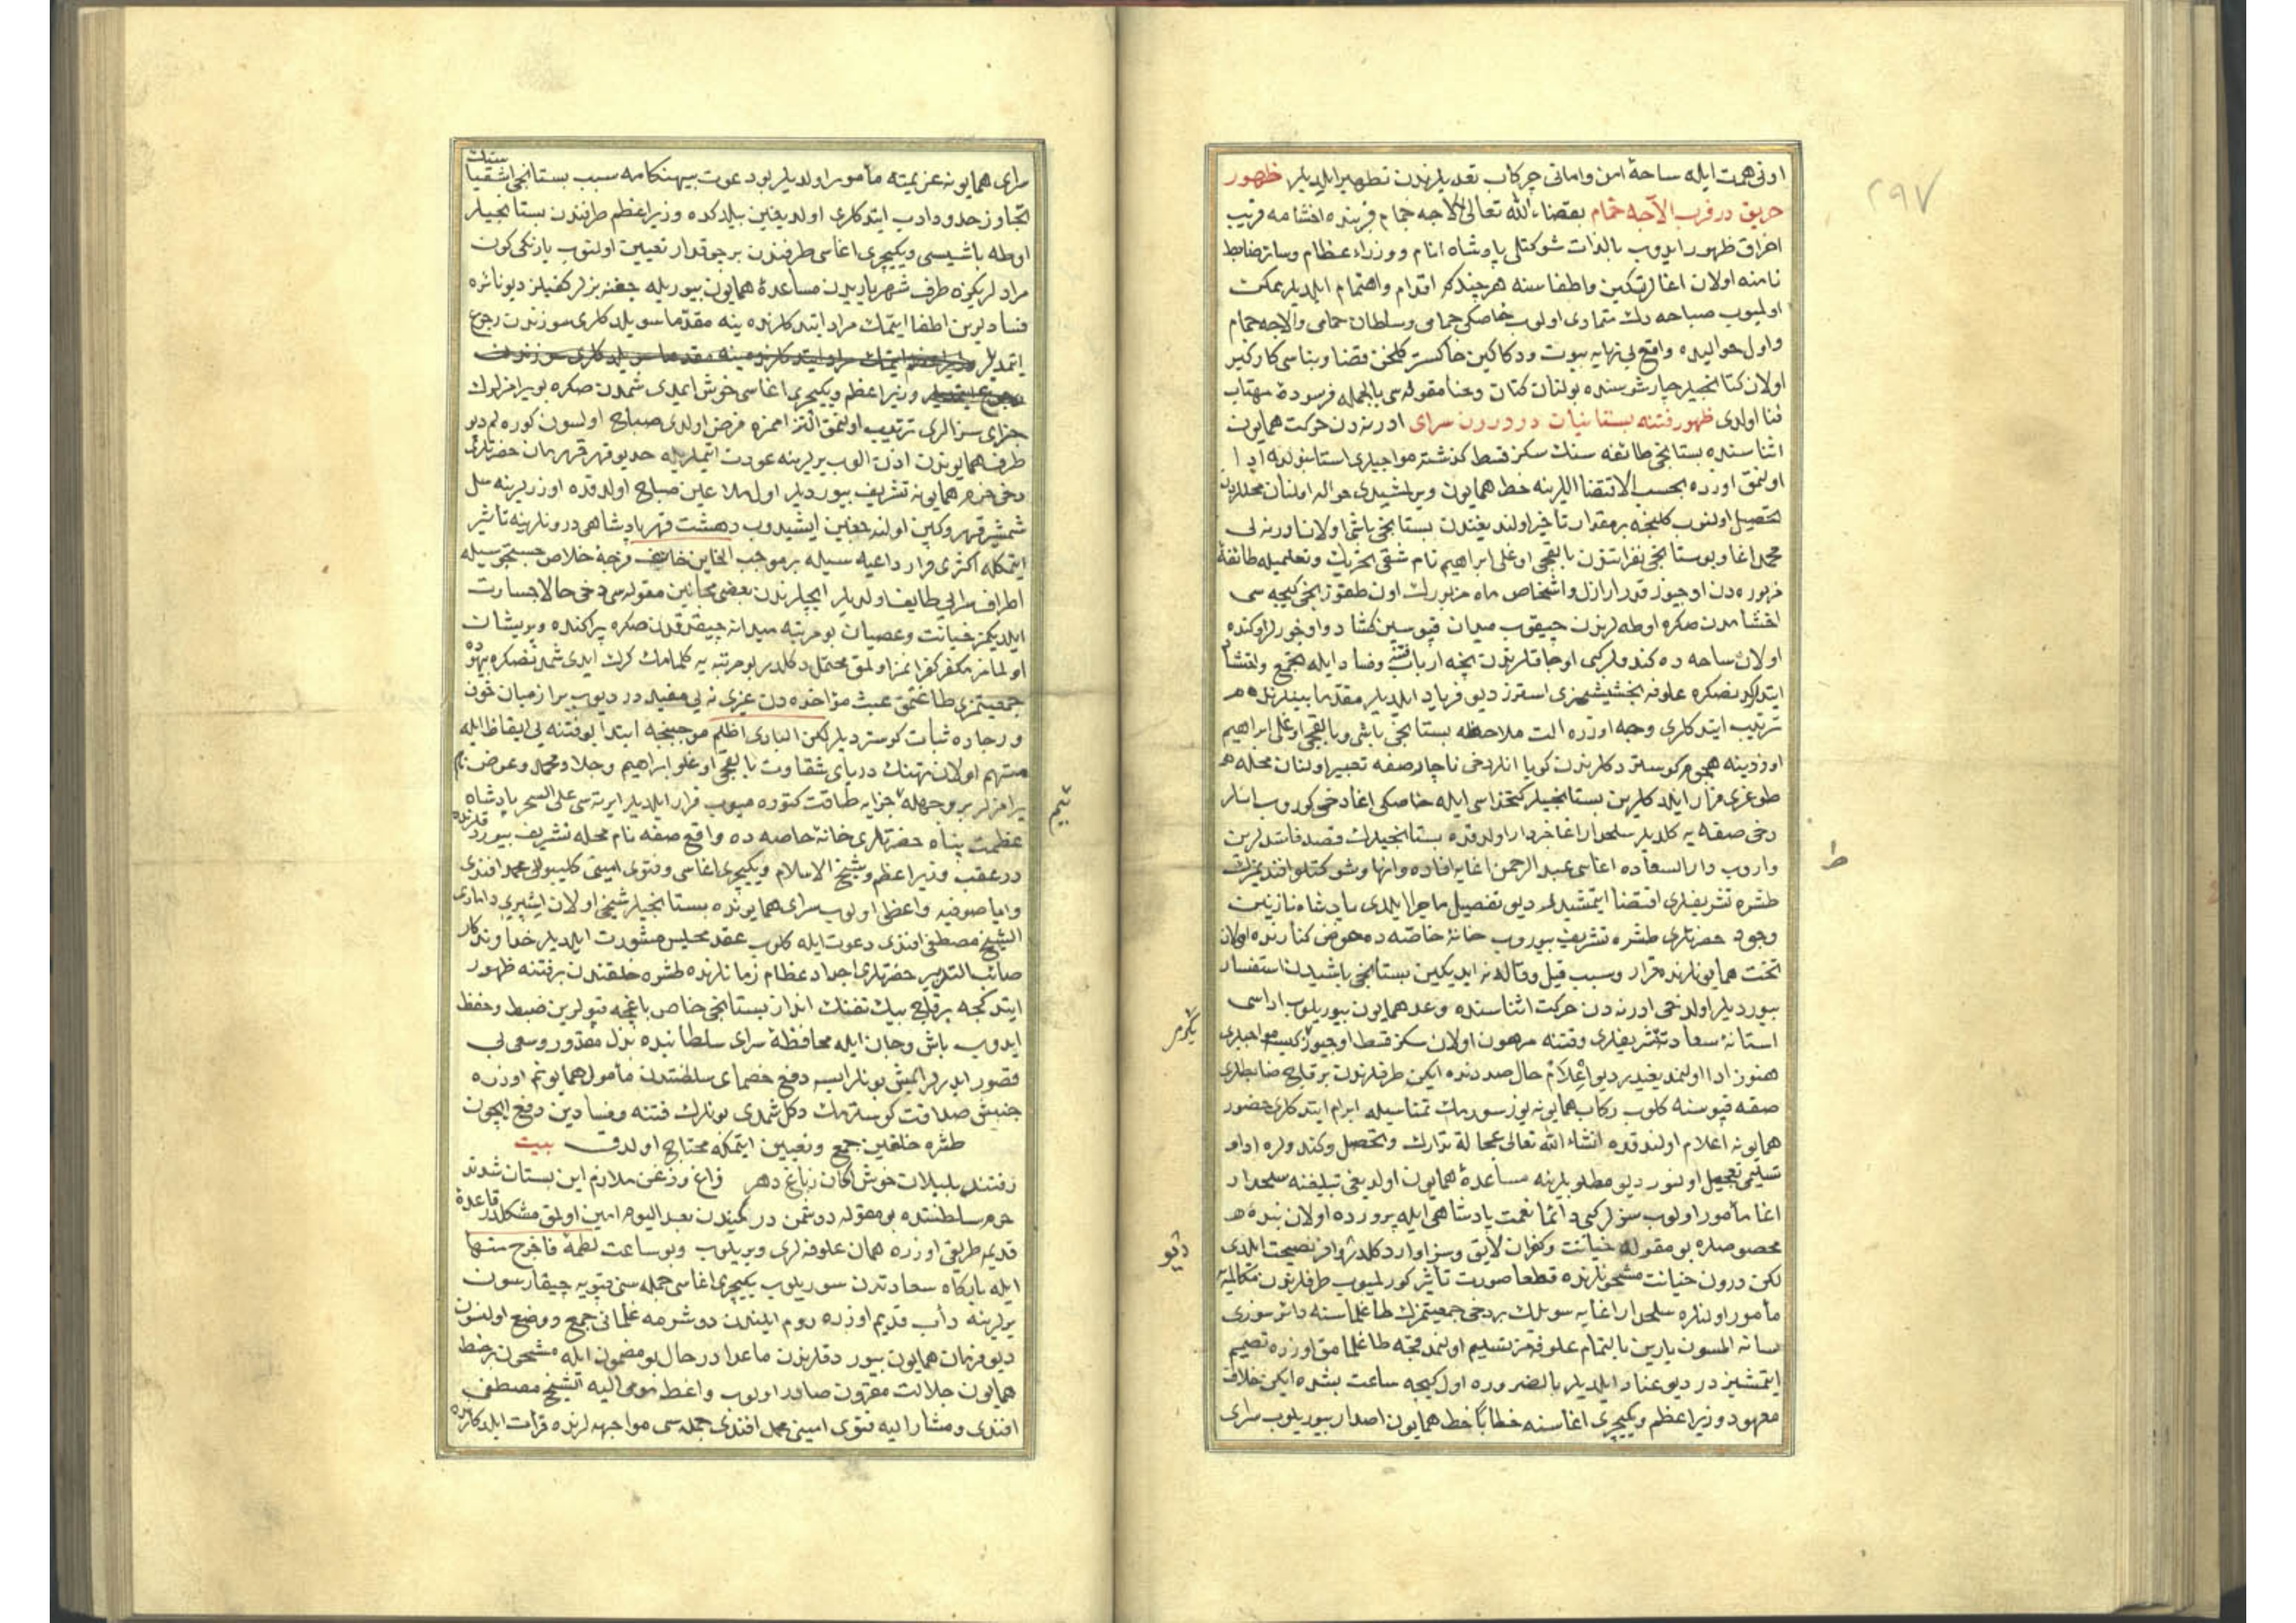 ٢٩٧
اونی همت ایله ساحهٔ امن و امانی چرکاب تعدیلرندن تطهیر ایلدیلر ظهور
حریق در قرب الآجه حمام بقضاء الله تعالی الاجه حمام قربنده اخشامه قریب
احراق ظهور ایدوب بالذات شوکتلی پادشاه انام و وزراء عظام و سائر ضابط
نامنه اولان اغالر تسکین و اطفاسنه هر چند که اقدام و اهتمام ایلدیلر ممکن
اولمیوب صباحه دك متمادی اولوب خاصکی حمامی و سلطان حمامی و الاجه حمام
و اول حوالیده واقع بی نهایه بیوت و دکاکین خاکستر کلخن قضا و بناسی کارکیر
اولان کتانجیلر چارشوسنده بولنان کتان و حنا مقوله سی بالجمله فرسودهٔ مهتاب
فنا اولدی ظهور فتنه بستانیان در درون سرای ادرنه دن حرکت همایون
اثناسنده بستانجی طائفه سنك سکز قسط کذشته مواجبلری استانبولده ادا
اولنمق اوزره بحسب الاقتضا اللرینه خط همایون ویرلمشیدی حواله اولنان محللردن
تحصیل اولنوب کلنجه بر مقدار تاخیر اولندیغندن بستانجی باشی اولان ادرنه لی
محمد اغا و بوستانجی نفراتندن بالقجی اوغلی ابراهیم نام شقی تحریك و تعلیمیله طائفهٔ
مزبوره دن اوچیوز قدر ارازل و اشخاص ماه مزبورك اون طقوزنجی کیجه سی
اخشامدن صکره اوطه لرندن چیقوب میدان قپوسین کشاد و اوخورلر اوکنده
اولان ساحه ده کندولر کبی اوجاقلرندن نیجه ارباب فتنه و فساد ایله تجمع و احتشاد
ایتدکدنصکره علوفه و بخشیشمزی استرز دیو فریاد ایلدیلر مقدما بینلرنده
ترتیب ایتدکلری وجه اوزره الت ملاحظه بستانجی باشی و بالقجی اوغلی ابراهیم
اوزرینه هجوم کوستردکلرندن کویا انلر دخی ناچار صفه تعبیر اولنان محله
طوغری فرار ایلدکلرین بستانجیلر کتخداسی ایله خاصکی اغا دخی کوروب انلر
دخی صفه یه کلدیلر سلحدار اغا خبردار اولدقده بستانجیلرك قصد فاسدلرین
واروب دار السعاده اغاسی عبد الرحمن اغایه افاده و انها و شوکتلو افندیمزك
طشره تشریفلری اقتضا ایتمشیدر دیو تفصیل ماجرا ایلدی پادشاه نازنین
وجود حضرتلری طشره تشریف بیوروب خانهٔ خاصه ده حوض کنارنده اولان
تخت همایونلرنده قرار و سبب قیل و قاله نه ایدیکین بستانجی باشیدن استفسار
بیوردیلر اولدخی ادرنه دن حرکت اثناسنده وعد همایون بیوریلوب اداسی
استانهٔ سعادته تشریفلری وقتنه مرهون اولان سکز قسط اوچیوز کیسه مواجبلری
هنوز ادا اولنمدیغیدر دیو اعلام حال صددنده ایکن طرفلرندن بر قاچ ضابطلری
صفه قپوسنه کلوب رکاب همایونه یوز سورمك تمناسیله ابرام ایتدکلری حضور
همایونه اعلام اولندقده انشاء الله تعالی عجالة تدارك و تحصیل و کندولره ادا و
تسلیمی تعجیل اولنور دیو مطلوبلرینه مساعدهٔ همایون اولدیغی تبلیغنه سلحدار
اغا مأمور اولوب سزلر کبی دائما نعمت پادشاهی ایله پرورده اولان بندهٔ
مخصوصلره بو مقوله خیانت و کفران لایق و سزاوار دکلدر دیو وافر نصیحت ایلدی
لکن درون خیانت مشحونلرنده قطعا صورت تأثیر کورلمیوب طرفلرندن مکالمه یه
مأمور اولنلره سلحدار اغایه سویلك بر دخی جمعیتمزك طاغلماسنه دائر سوزی
لسانه المسون یارین بالتمام علوفه مز تسلیم اولنمدقجه طاغلمامق اوزره تصمیم
ایتمشیزدر دیو عناد ایلدیلر بالضروره اول کیجه ساعت بشده ایکن خلاف
معهود وزیراعظم و یکیچری اغاسنه خطابا خط همایون اصدار بیوریلوب سرای
ط
یکرمی
دیو
سرای همایونه عزیمته مأمور اولدیلر بو دعوت بیهنکامه سبب بستانجی اشقیاسنك
تجاوز حدود ادب ایتدکلری اولدیغین بیلدکده وزیراعظم طرفندن بستانجیلر
اوطه باشیسی و یکیچری اغاسی طرفندن بر چوقدار تعیین اولنوب یارنکی کون
مرادلریکزه طرف شهریاریدن مساعدهٔ همایون بیوریله جغنه بزلر کفیلز دیو نائره
فسادلرین اطفا ایتمك مراد ایتدکلرنده ینه مقدما سویلدکلری سوزندن رجوع
ایتمدیلر
وزیراعظم و یکیچری اغاسی خوش ایمدی شمدن صکره بو یرامزلرك
جزای سزالری ترتیب اولنمق التزاممزه فرض اولدی صباح اولسون کوره لم دیو
طرف همایوندن اذن الوب یرلرینه عودت ایتمیلریله خدیو قهر قهرمان حضرتلری
دخی حرم همایونه تشریف بیوردیلر اول ملاعین صباح اولدقده اوزرلرینه سل
شمشیر قهر و کین اولنه جغین ایشیدوب دهشت قهر پادشاهی درونلرینه تأثیر
ایتمکله اکثری فرار داعیه سیله بر موجب الخاین خائف فرجهٔ خلاص جستجوسیله
اطراف سرایی طایف اولدیلر ایچلرندن بعضی مجانین مقوله سی دخی حالا جسارت
ایلدیکمز خیانت و عصیان بو مرتبه میدانه چیقدقدن صکره پراکنده و پریشان
اولمامز مکفر کفرانمز اولمق محتمل دکلدر بو مرتبه یه کلمامك کرك ایدی شمدنصکره بیهوده
جمعیتمزی طاغتمق عبث مؤاخذه دن غیری نه یی مفیددر دیوب بر از میان خوف
و رجاده ثبات کوستردیلر لکن البادی اظلم موجبنجه ابتدا بو فتنه یی ایقاظ ایله
متهم اولان نهنك دریای شقاوت بالقجی اوغلو ابراهیم و جلاد محمد و عوض نام
یرامزلر بر وجهله جزایه طاقت کتوره میوب فرار ایلدیلر ایرته سی علی السحر پادشاه
عظمت پناه حضرتلری خانهٔ خاصه ده واقع صفه نام محله تشریف بیوردقلرنده
در عقب وزیراعظم و شیخ الاسلام و یکیچری اغاسی و فتوی امینی کلیبولی محمد افندی
و ایاصوفیه واعظی اولوب سرای همایونده بستانجیلر شیخی اولان اسپیری دامادی
الشیخ مصطفی افندی دعوت ایله کلوب عقد مجلس مشورت ایلدیلر خداوندکار
صائب التدبیر حضرتلری اجداد عظام زمانلرنده طشره خلقندن بر فتنه ظهور
ایتدکجه بر قاچ بیك تفنك انداز بستانجی خاص باغچه قپولرین ضبط و حفظ
ایدوب باش و جان ایله محافظهٔ سرای سلطانیده بذل مقدور و سعی بی
قصور ایدرلر ایمش بونلر ایسه دفع خصمای سلطنتدن مأمول همایونم اوزره
جنبش صداقت کوسترمك دکل شمدی بونلرك فتنه و فسادین دفع ایچون
طشره خلقین جمع و تعیین ایتمکه محتاج اولدق بیت
رفتند بلبلان خوش الحان ز باغ دهر زاغ و زغن ملازم این بستان شدند
حرم سلطنتده بو مقوله دوشمن در کمیندن بعد الیوم امین اولمق مشکلدر قاعدهٔ
قدیمه طریقی اوزره همان علوفه لری ویریلوب و بو ساعت لطمهٔ فاخرج منها
ایله بارکاه سعادتدن سوریلوب یکیچری اغاسی جمله سنی قپویه چیقارسون
یرلرینه دأب قدیم اوزره روم ایلندن دوشرمه غلمانی جمع و وضع اولنسون
دیو فرمان همایون بیوردقلرندن ماعدا در حال بو مضمون ایله مشحون بر خط
همایون جلالت مقرون صادر اولوب واعظ مومی الیه الشیخ مصطفی
افندی و مشار الیه فتوی امینی محمد افندی جمله سی مواجهه لرنده قرائت ایلدکلرنده
تیم